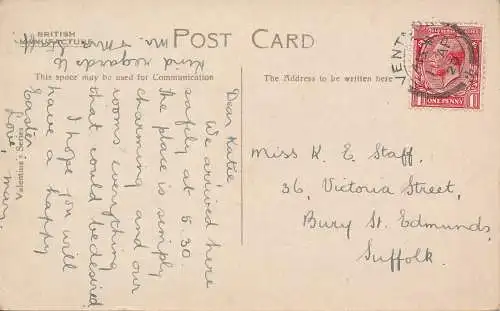 BRITISH
MANUFACTURE
POST CARD
This space may be used for Communication
The Address to be written here
ONE PENNY
Valentine's Series
Dear Katie,
We arrived here
safely at 5.30.
the place is simply
charming and our
rooms everything
that could be desired
I hope you will
have a happy
Easter.
Love, Mary.
Kind regards to
Mr. & Mrs.
Staff
Miss K. E. Staff.
36, Victoria Street,
Bury St. Edmunds,
Suffolk.